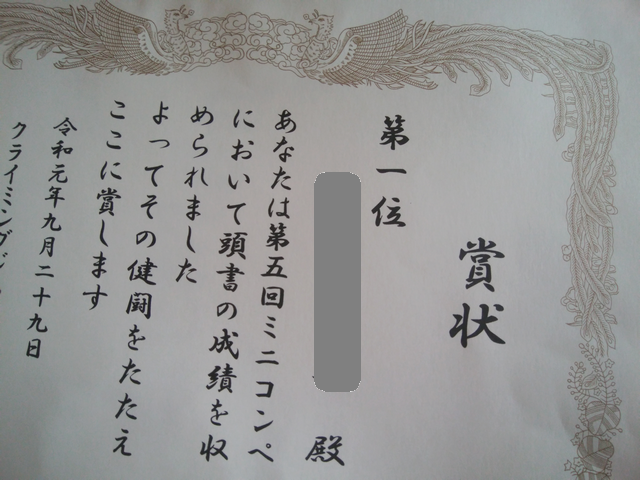 賞状
第一位
殿
あなたは第五回ミニコンペ
において頭書の成績を収
められました
よってその健闘をたたえ
ここに賞します
令和元年九月二十九日
クライミングジ